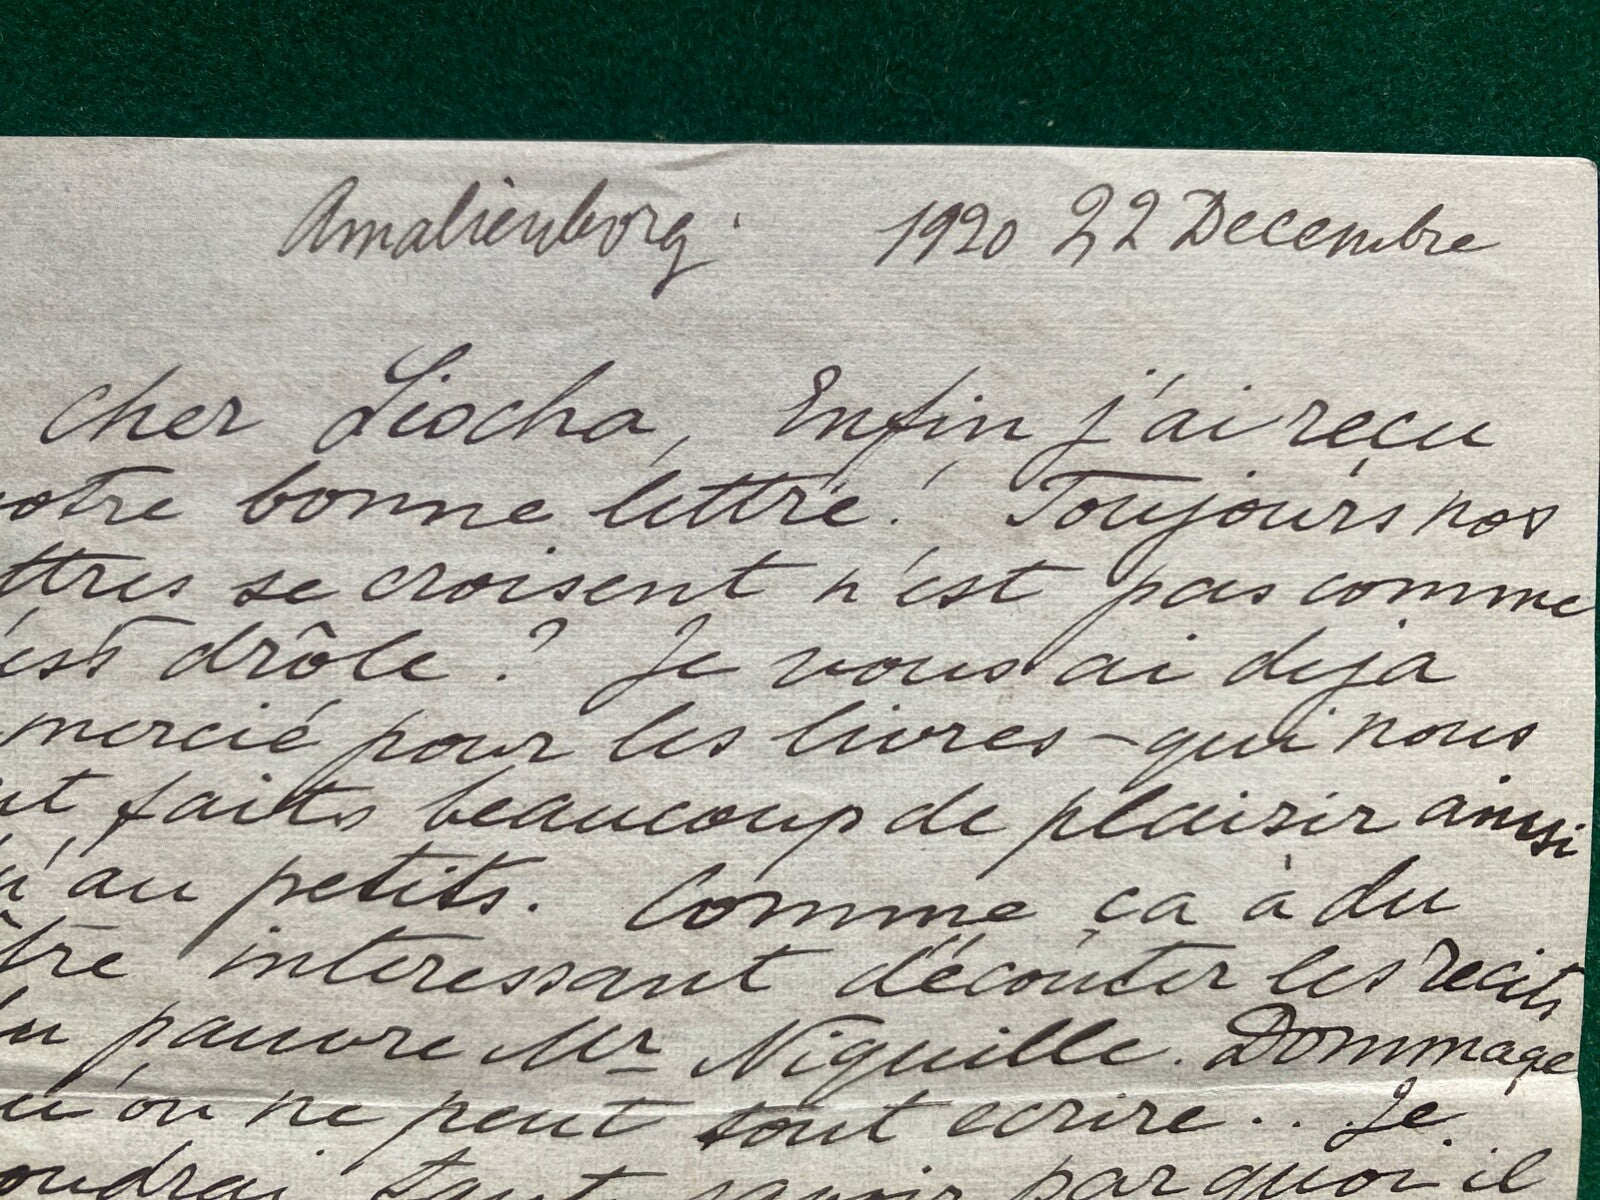 Amalienborg. 1920 22 Decembre
cher Liocha, Enfin j'ai reçu
otre bonne lettre! Toujours nos
ttres se croisent n'est pas comme
'est drôle? Je vous ai deja
mercié pour les livres – qui nous
nt faits beaucoup de plaisir ainsi
u'au petits. Comme ça à du
tre interessant d'écouter les recits
du pauvre Mr Niquille. Dommage
u'on ne peut tout ecrire.. Je
oudrai tant savoir parquoi il